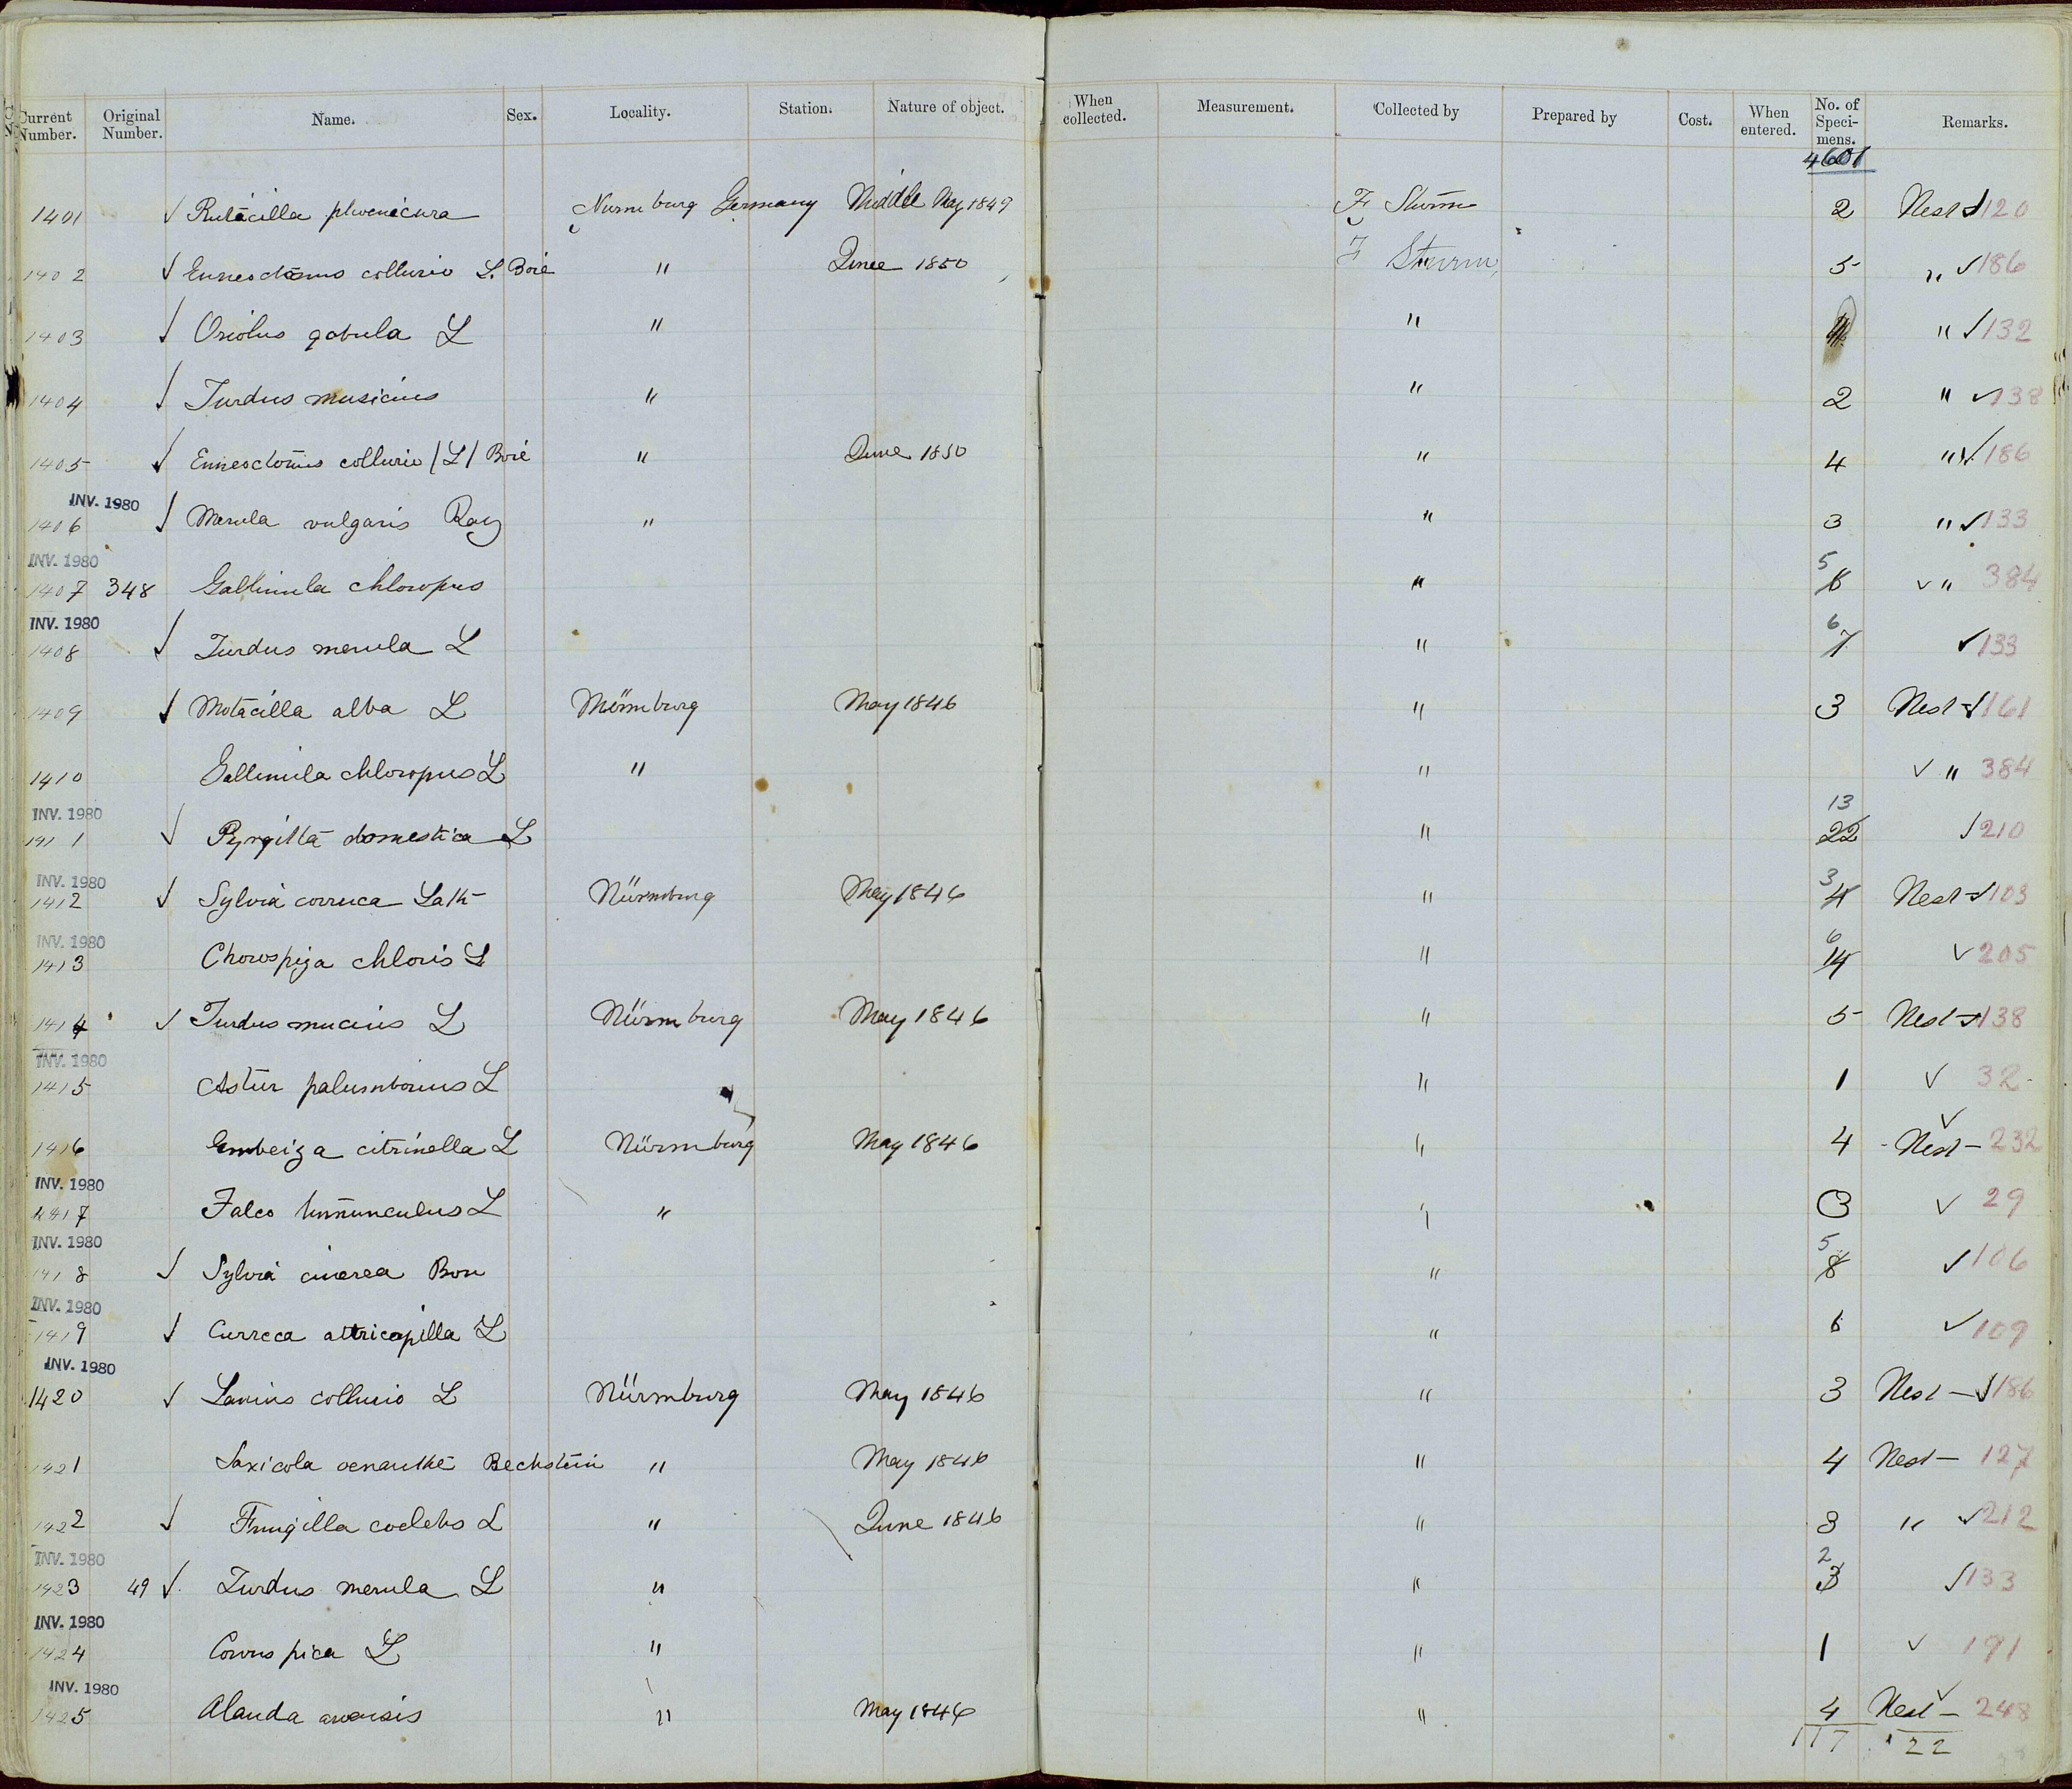 Current Number. Original Number. Name. Sex. Locality. Station. Nature of object. When collected. Measurement. Collected by Prepared by Cost. When entered. No. of Speci-mens. Remarks.
4601
1401 ✓ Rutacilla phoenicura Nurnburg Germany Middle May 1849 F Sturm 2 Nest ✓ 120
1402 ✓ Enneoctonus collurio L. Boié " June 1850 F Sturm 5 " ✓ 186
1403 ✓ Oriolus galbula L " " " ✓ 132
1404 ✓ Turdus musicus " " 2 " ✓ 138
1405 ✓ Enneoctonus collurio (L) Boié " June 1850 " 4 " ✓ 186
INV. 1980
1406 ✓ Merula vulgaris Ray " " 3 " ✓ 133
INV. 1980
1407 348 Gallinula chloropus " 5 6 ✓ " 384
INV. 1980
1408 ✓ Turdus merula L " 6 7 ✓ 133
1409 ✓ Motacilla alba L Nürnburg May 1846 " 3 Nest ✓ 161
1410 Gallinula chloropus L " " ✓ " 384
INV. 1980
1411 ✓ Pyrgilta domestica L " 13 22 ✓ 210
INV. 1980
1412 ✓ Sylvia curruca Lath Nürnburg May 1846 " 3 4 Nest ✓ 103
INV. 1980
1413 Chorospiza chloris L " 6 14 ✓ 205
1414 ✓ Turdus mucius L Nürnburg May 1846 " 5 Nest ✓ 138
INV. 1980
1415 Astur palumbarius L " 1 ✓ 32
1416 Embeiza citrinella L Nürnburg May 1846 " 4 Nest ✓ 232
INV. 1980
1417 Falco tinnunculus L " " 3 ✓ 29
INV. 1980
1418 ✓ Sylvia cinerea Bon " 5 8 ✓ 106
INV. 1980
1419 ✓ Curreca attricapilla L " 6 ✓ 109
INV. 1980
1420 ✓ Lanius collurio L Nürnburg May 1846 " 3 Nest ✓ 186
1421 Saxicola oenanthe Bechstein " May 1846 " 4 Nest 127
1422 ✓ Fringilla coelebs L " June 1846 " 3 " ✓ 212
INV. 1980
1423 49 ✓ Turdus merula L " " 2 3 ✓ 133
INV. 1980
1424 Corvus pica L " " 1 ✓ 191
INV. 1980
1425 Alauda arvensis " May 1846 " 4 Nest ✓ 248
117 22